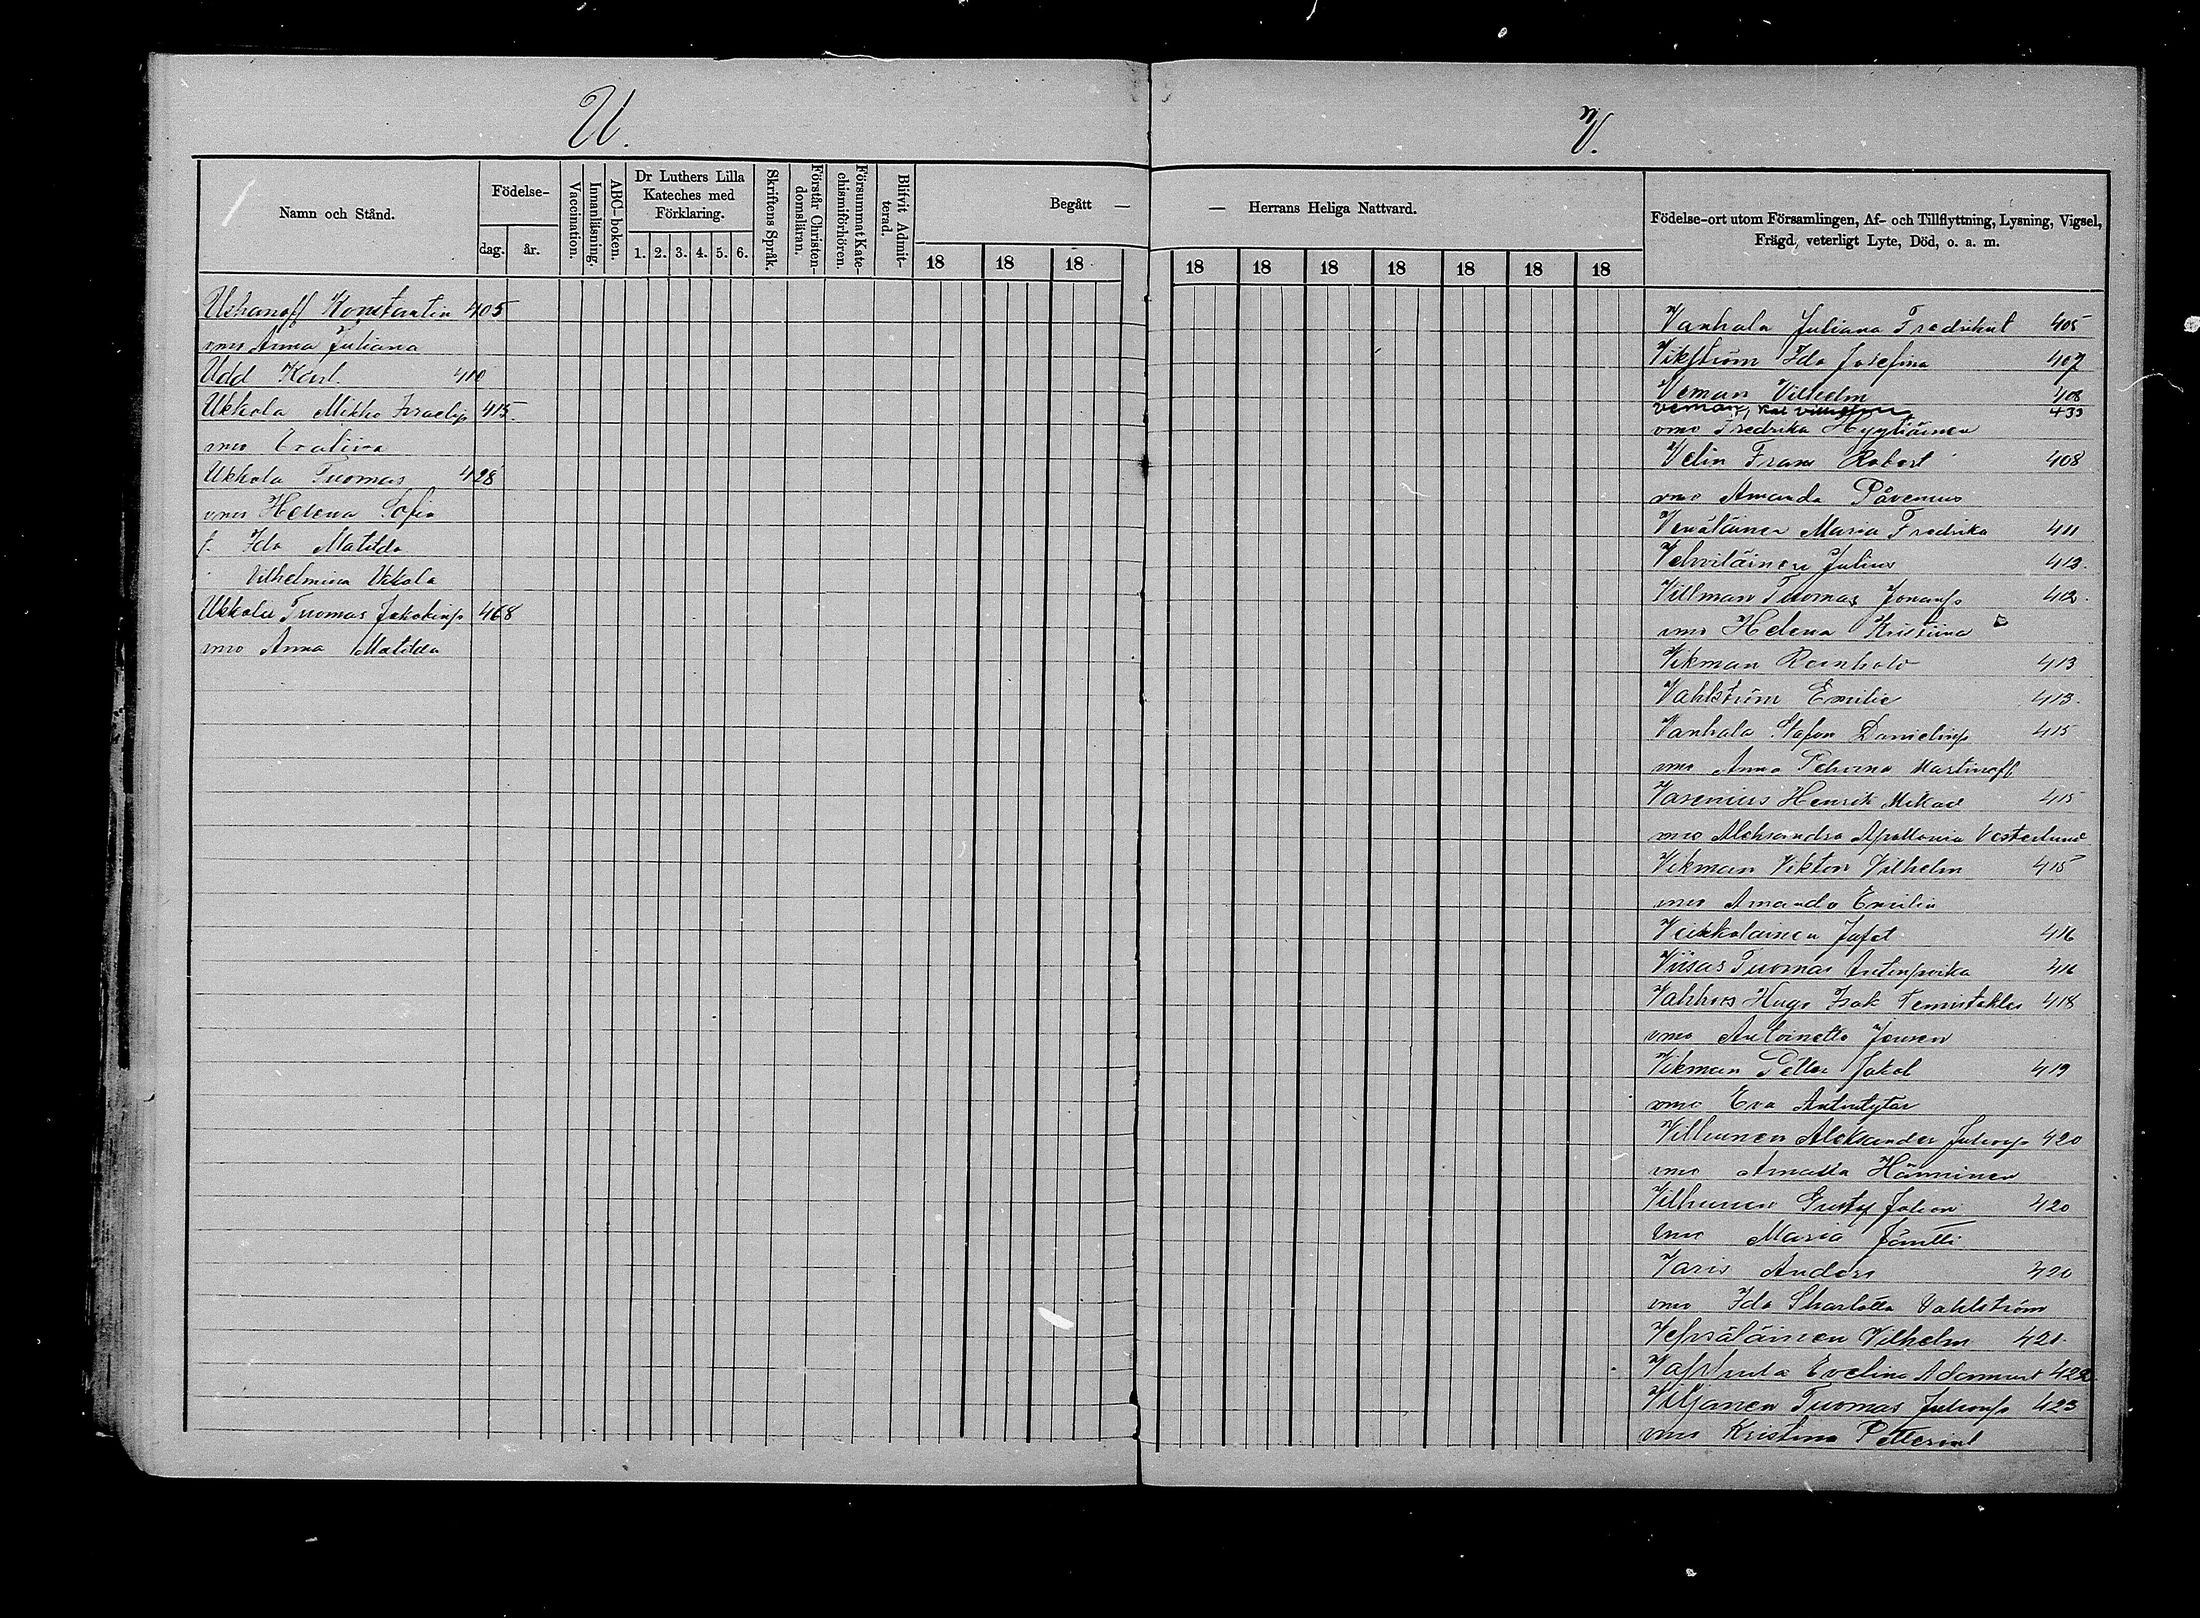 U.
Namn och Stånd.
Födelse-
dag.
år.
Vaccination.
Innanläsning.
ABC-boken.
Dr Luthers Lilla Kateches med Förklaring.
1. 2. 3. 4. 5. 6.
Skriftens Språk.
Förstår Christen-domsläran.
Försummat Kate-chismiförhören.
Blifvit Admit-terad.
Begått —
18 18 18
Ushanoff Konstantin 405
vmo Anna Juliana
Udd Karl 410
Ukkola Mikko Israelinp 415.
vmo Evaliina
Ukkola Tuomas 428
vmo Helena Sofia
f. Ida Matilda
Vilhelmina Ukkola
Ukkola Tuomas Jakobinp 468
vmo Anna Matilda
V.
— Herrans Heliga Nattvard.
18 18 18 18 18 18 18
Födelse-ort utom Församlingen, Af- och Tillflyttning, Lysning, Vigsel,
Frägd, veterligt Lyte, Död, o. a. m.
Vanhala Juliana Fredrikint 405
Vikström Ida Josefina 407
Veman Vilhelm 408
Veman, Kal Vilhelm 433
vmo Fredrika Hyytiäinen
Velin Frans Robert 408
vmo Amanda Påvenius
Venäläinen Maria Fredrika 411
Vehviläinen Julius 412.
Villman Tuomas Jonanp 412.
vmo Helena Kristiina
Vikman Reinhold 413
Vahlström Emilia 413.
Vanhala Stefan Danielinp 415
vmo Anna Petrovna Martinoff
Varenius Henrik Mikael 415
vmo Aleksandra Apollonia Vesterlund
Vikman Viktor Vilhelm 415
vmo Amanda Emilia
Veikkolainen Jafet 416
Viisas Tuomas Antinpoika 416
Vahlfors Hugo Isak Temistokles 418
vmo Antoinette Jensen
Vikman Petter Jakob 419
vmo Eva Antintytär
Vilhunen Aleksander Juhonp 420
vmo Amalia Hänninen
Vilhunen Gustaf Johan 420
vmo Maria Jäntti
Varis Anders 420
vmo Ida Sharlotta Vahlström
Vepsäläinen Vilhelm 421.
Evelina Adamint 422
Viljanen Tuomas Juhonp 423
vmo Kristina Petterint